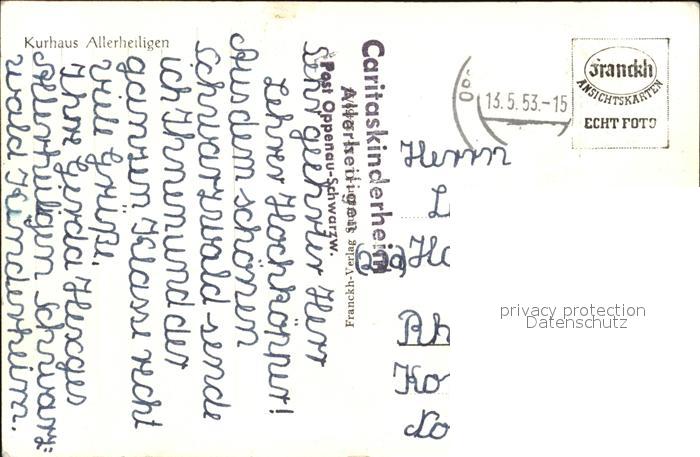 Kurhaus Allerheiligen
Sehr geehrter Herr
Lehrer Hochköpper!
Aus dem schönen
Schwarzwald sende
ich Ihnen und der
ganzen Klasse recht
viele Grüße,
Ihre Gerda
Allerheiligen Schwarz=
wald Kinderheim.
Caritaskinderheim
Allerheiligen
Post Oppenau-Schwarzw.
Franckh-Verlag
13.5.53.-15
Franckh
ANSICHTSKARTEN
ECHT FOTO
Herrn
L
Ho
Rh
Ko
privacy protection
Datenschutz